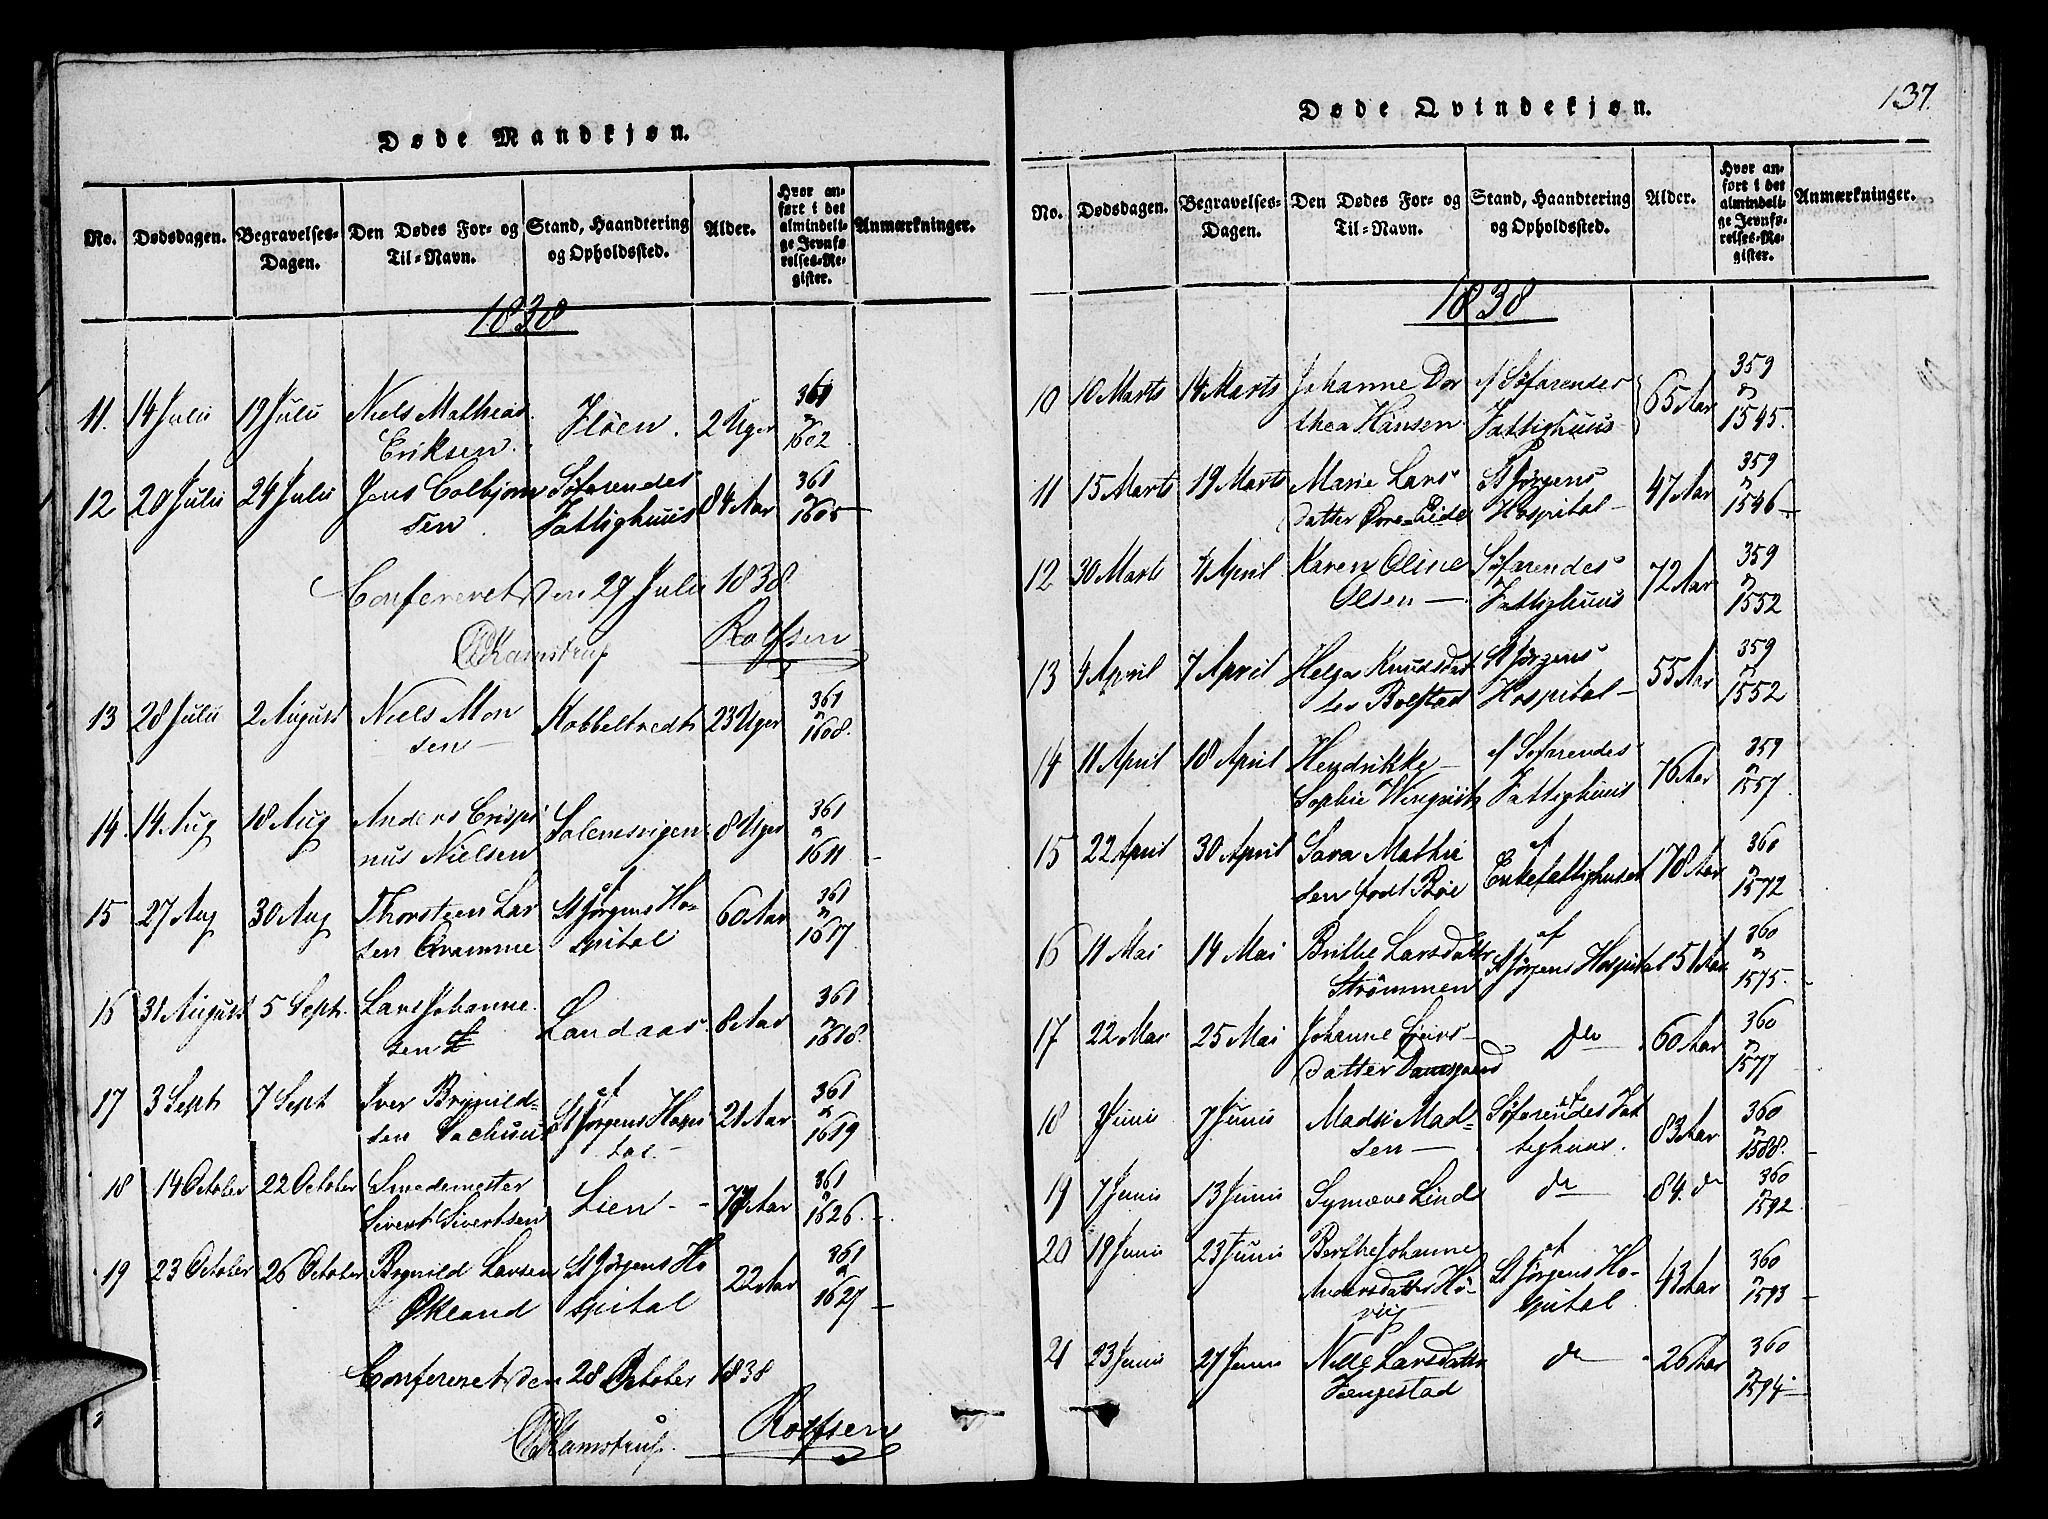 Døde Mandkjøn.
No. Dødsdagen. Begravelses-Dagen. Den Dødes For- og Til-Navn. Stand, Haandtering og Opholdssted. Alder. Hvor anført i det almindelige Jevnførelses-Register. Anmærkninger.
1838
11. 14 Juli 19 Juli Niels Mathias Eriksen. Fløen. 2 Uger 361 n 1602.
12 20 Juli 24 Juli Jens Colbjørnsen Søfarendes Fattighuus 84 Aar 361 n 1605
Confereret den 29 Juli 1838
Kamstrup Rolfsen
13 28 Juli 2 August Niels Monsen Kobbeltvedt 23 Uger 361 n 1608.
14. 14 Aug 18 Aug Anders Crispinus Nielsen Solemsvigen 8 Uger 361 n 1611
15 27 Aug 30 Aug Thorsteen Larsen Qvamme af St Jørgens Hospital 60 Aar 361 n 1617
16 31 August 5 Sept. Lars Johannesen Landaas 8 Aar 361 n 1618.
17 3 Sept 7 Sept Iver Brynildsen af St Jørgens Hospital 21 Aar 361 n 1619
18 14 October 22 October Smedemester Sivert Sivertsen Lien 77 Aar 361 n 1626
19 23 October 26 October Brynild Larsen Økland St Jørgens Hospital 22 Aar 361 n 1627
Confereret den 28 October 1838
Kamstrup. Rolfsen
137.
Døde Qvindekjøn.
No. Dødsdagen. Begravelses-Dagen. Den Dødes For- og Til-Navn. Stand, Haandtering og Opholdssted. Alder. Hvor anført i det almindelige Jevnførelses-Register. Anmærkninger.
1838
10 10 Marts 14 Marts Johanne Dorthea Hansen af Søfarendes Fattighuus 65 Aar 359 n 1545.
11 15 Marts 19 Marts Marie Larsdatter Øvre-Eide St Jørgens Hospital 47 Aar 359 n 1546
12 30 Marts 4 April Karen Oline Olsen Søfarendes Fattighuus 72 Aar 359 n 1552
13 4 April 7 April Helga Knudsdatter Bolstad St Jørgens Hospital 55 Aar 359 n 1552
14 11 April 18 April Hendrikke Sophie Wingvist af Søfarendes Fattighuus 76 Aar 359 n 1557.
15 22 April 30 April Sara Mathiesen født Bøe af Enkefattighuset 78 Aar 360 n 1572
16 11 Mai 14 Mai Brithe Larsdatter Strømmen af St Jørgens Hospital 51 Aar 360 n 1575.
17 22 Mai 25 Mai Johanne datter do 60 Aar 360 n 1577
18 3 Junii 7 Junii Madsen af Søfarendes Fattighuus. 83 Aar 360 n 1588.
19 7 Junii 13 Junii Synnove Lind do 84. do 360 n 1592
20 19 Junii 23 Junii Berthe Johanne Andersdatter Høvig af St Jørgens Hospital 43 Aar 360 n 1593
21 23 Junii 27 Junii Nille Larsdatter do 26 Aar 360 n 1594